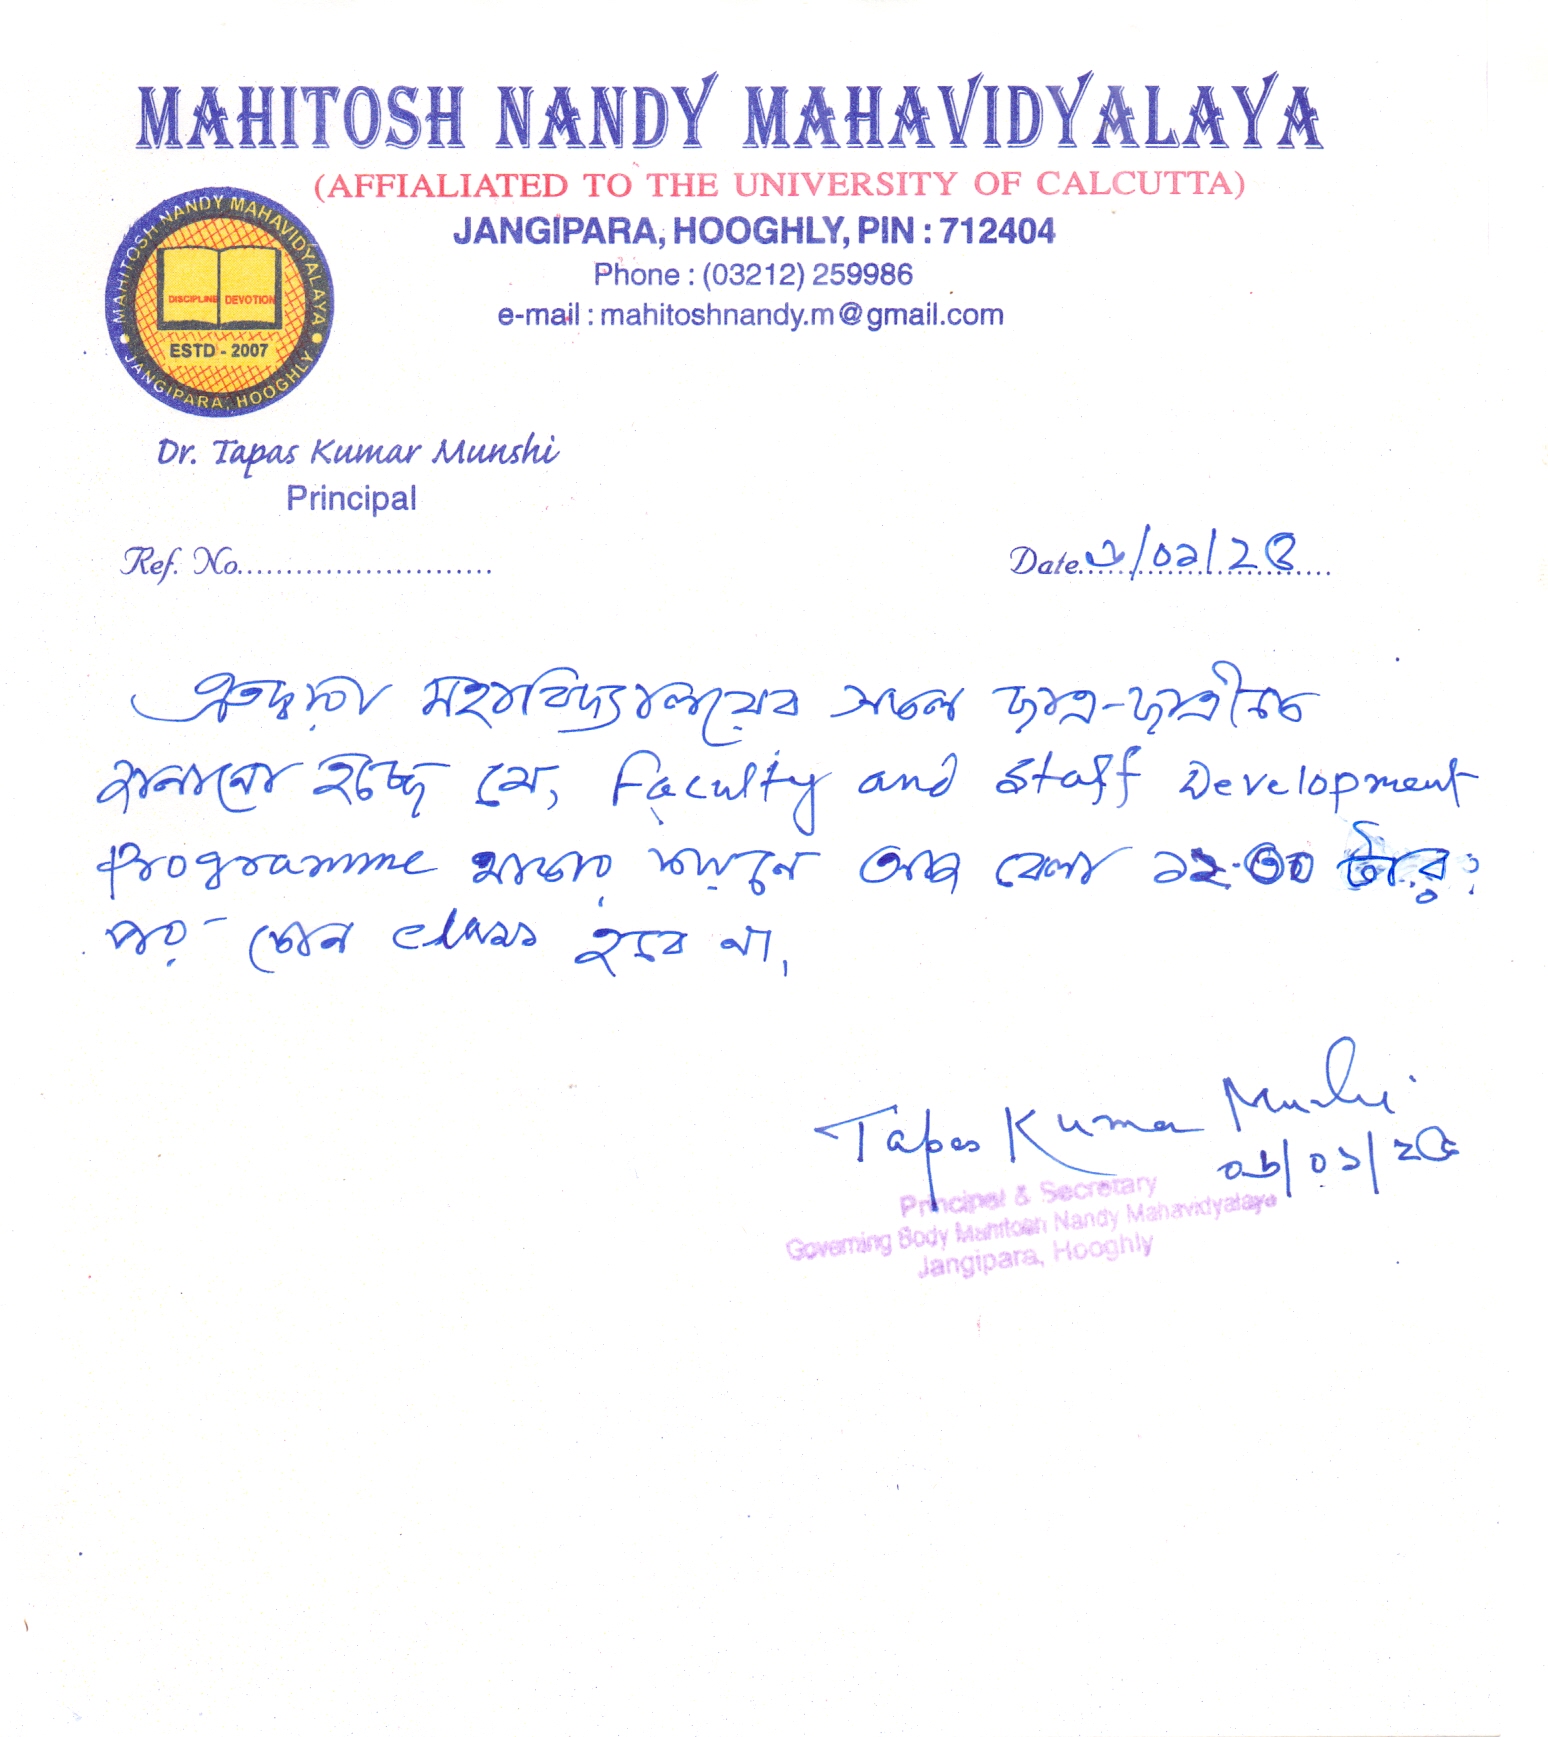 MAHITOSH NANDY MAHAVIDYALAYA
(AFFIALIATED TO THE UNIVERSITY OF CALCUTTA)
JANGIPARA, HOOGHLY, PIN : 712404
Phone : (03212) 259986
e-mail : mahitoshnandy.m@gmail.com
MAHITOSH NANDY MAHAVIDYALAYA
DISCIPLINE DEVOTION
ESTD - 2007
JANGIPARA, HOOGHLY
Dr. Tapas Kumar Munshi
Principal
Ref. No.........................
Date
এতদ্বারা মহাবিদ্যালয়ের সকল ছাত্র-ছাত্রীকে
জানানো হচ্ছে যে, Faculty and Staff Development
Programme থাকার কারণে আজ বেলা ১২.৩০ টার
পর কোন class হবে না,
Tapas Kumar Munshi
Principal & Secretary
Governing Body Mahitosh Nandy Mahavidyalaya
Jangipara, Hooghly